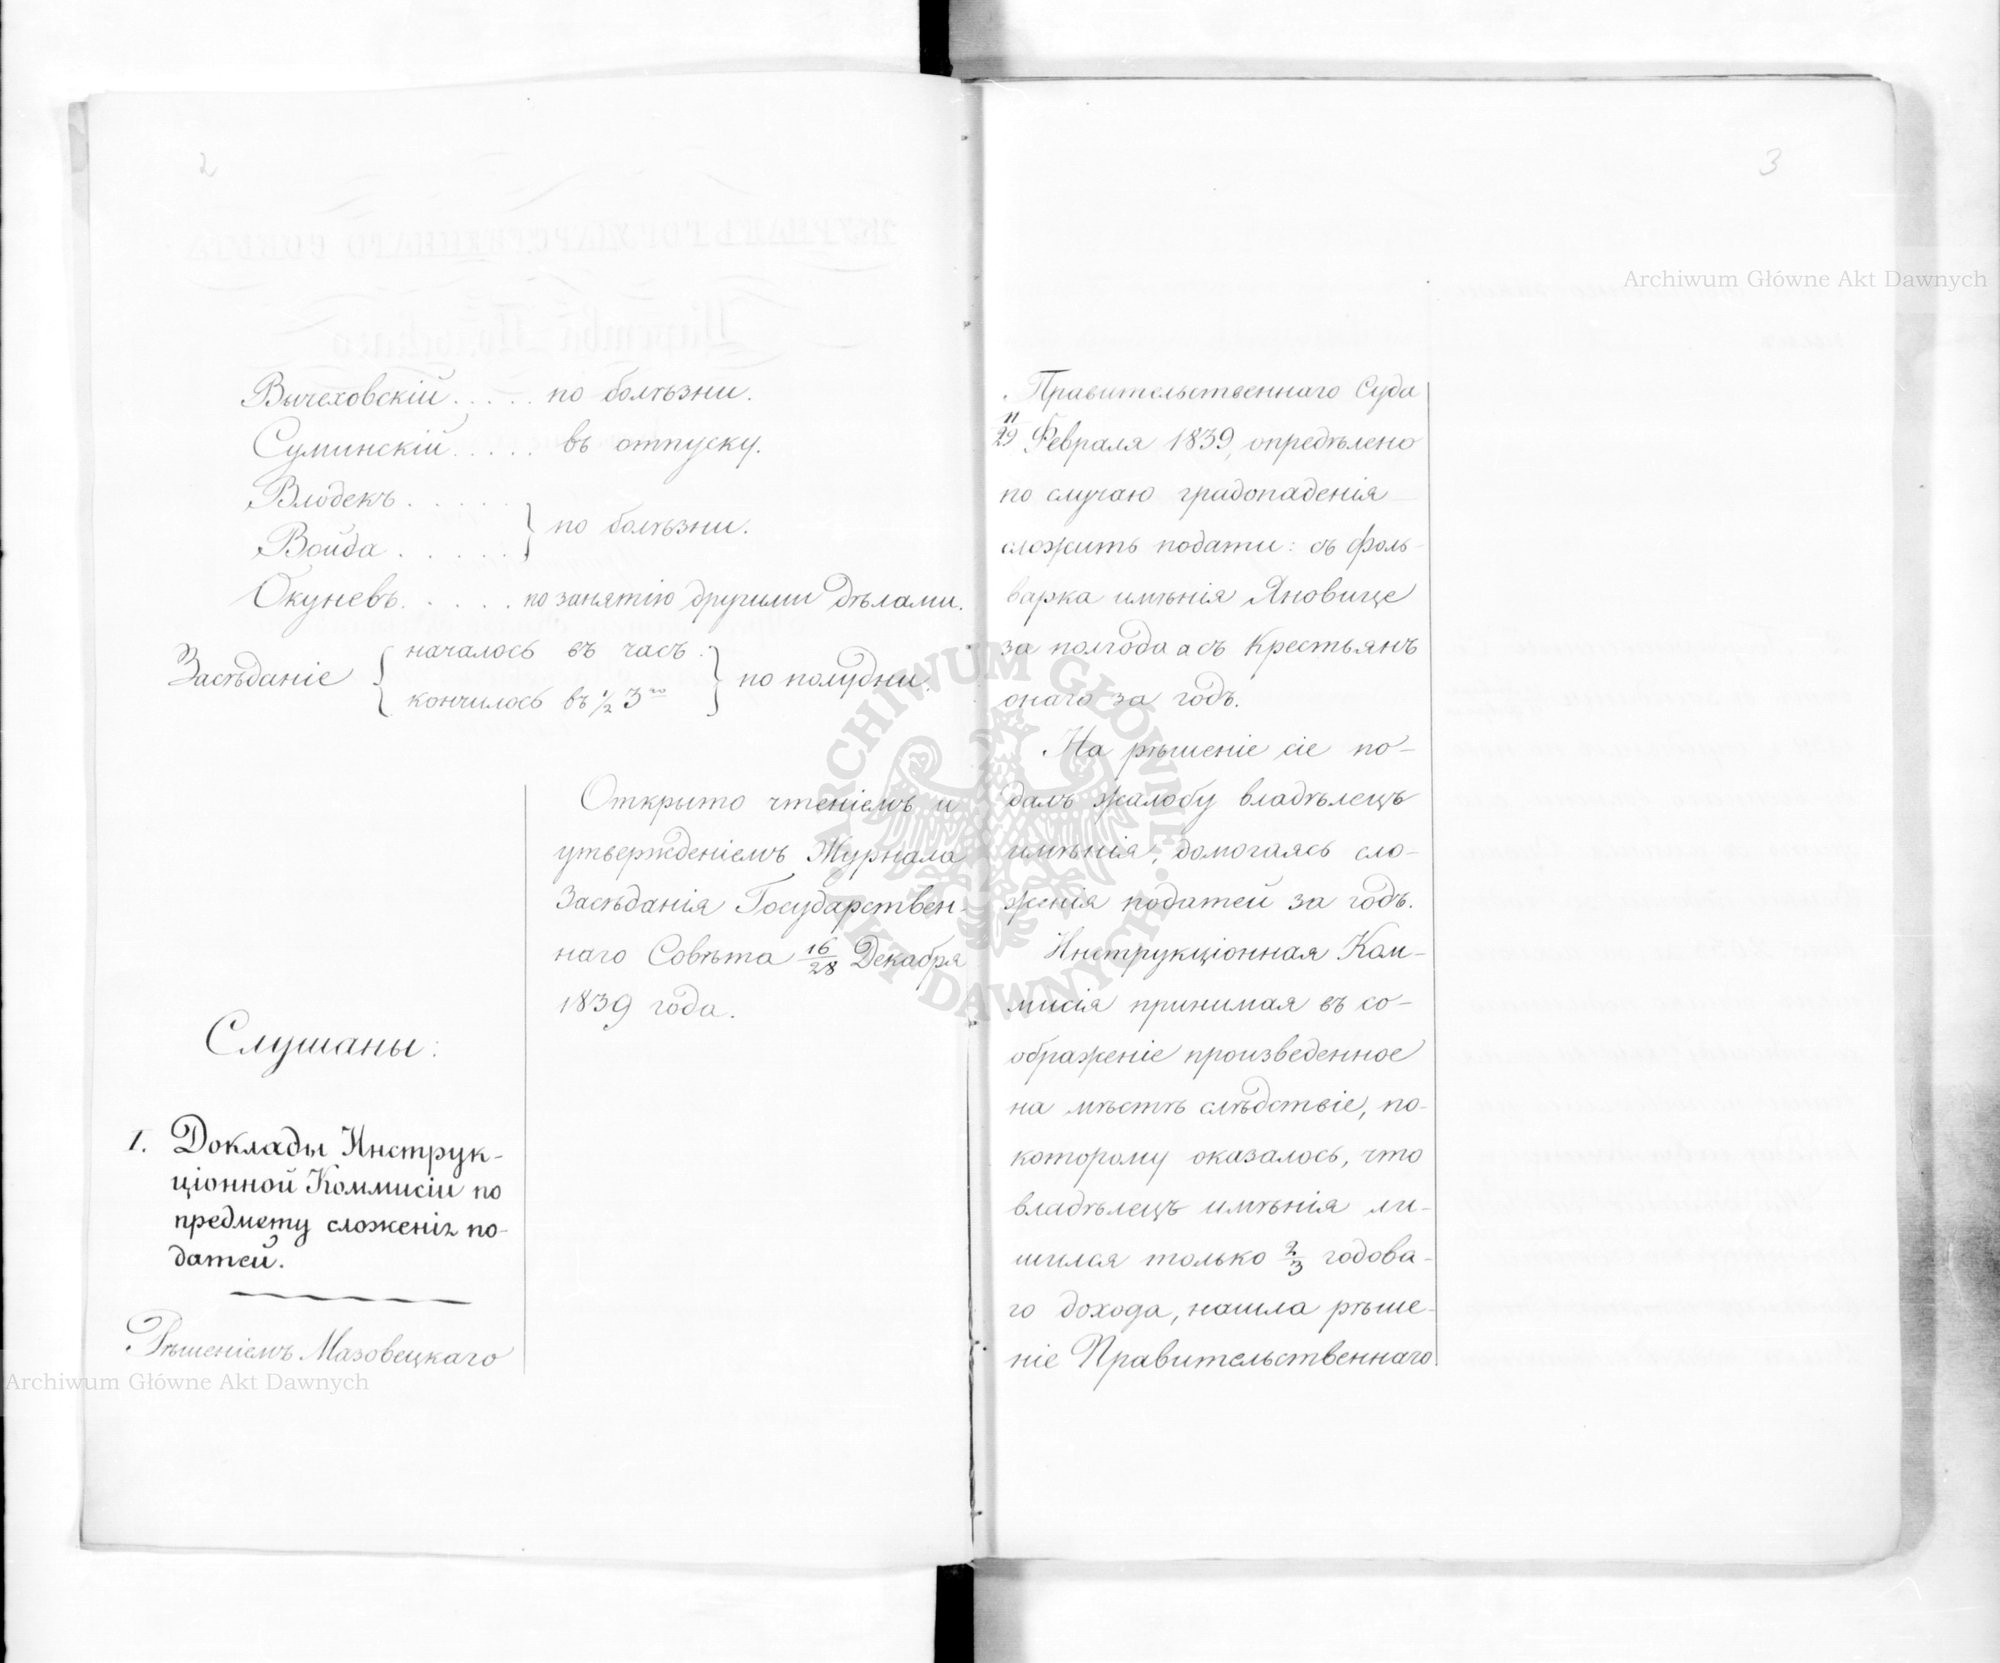 2
Вычеховскій . . . . . по болѣзни.
Суминскій . . . . . въ отпуску.
Влодекъ . . . . .
Войда . . . . . } по болѣзни.
Окуневъ . . . . . по занятію другими дѣлами.
Засѣданіе { началось въ часъ
кончилось въ ½ 3го } по полудни.
Открыто чтеніемъ и
утвержденіемъ Журнала
Засѣданія Государствен-
наго Совѣта 16/28 Декабря
1839 года.
Слушаны:
1. Доклады Инструк-
ціонной Коммисіи по
предмету сложенія по-
датей.
Рѣшеніемъ Мазовецкаго
Archiwum Główne Akt Dawnych
3
Archiwum Główne Akt Dawnych
Правительственнаго Суда
Февраля 1839, опредѣлено
по случаю градопаденія
сложить подати: съ фоль-
варка имѣнія Яновице
за полгода а съ Крестьянъ
онаго за годъ.
На рѣшеніе сіе по-
далъ жалобу владѣлецъ
имѣнія, домогаясь сло-
женія податей за годъ.
Инструкціонная Ком-
мисія принимая въ со-
ображеніе произведенное
на мѣстѣ слѣдствіе, по-
которому оказалось, что
владѣлецъ имѣнія ли-
шился только 2/3 годова-
го дохода, нашла рѣше-
ніе Правительственнаго
ARCHIWUM GŁÓWNE AKT DAWNYCH